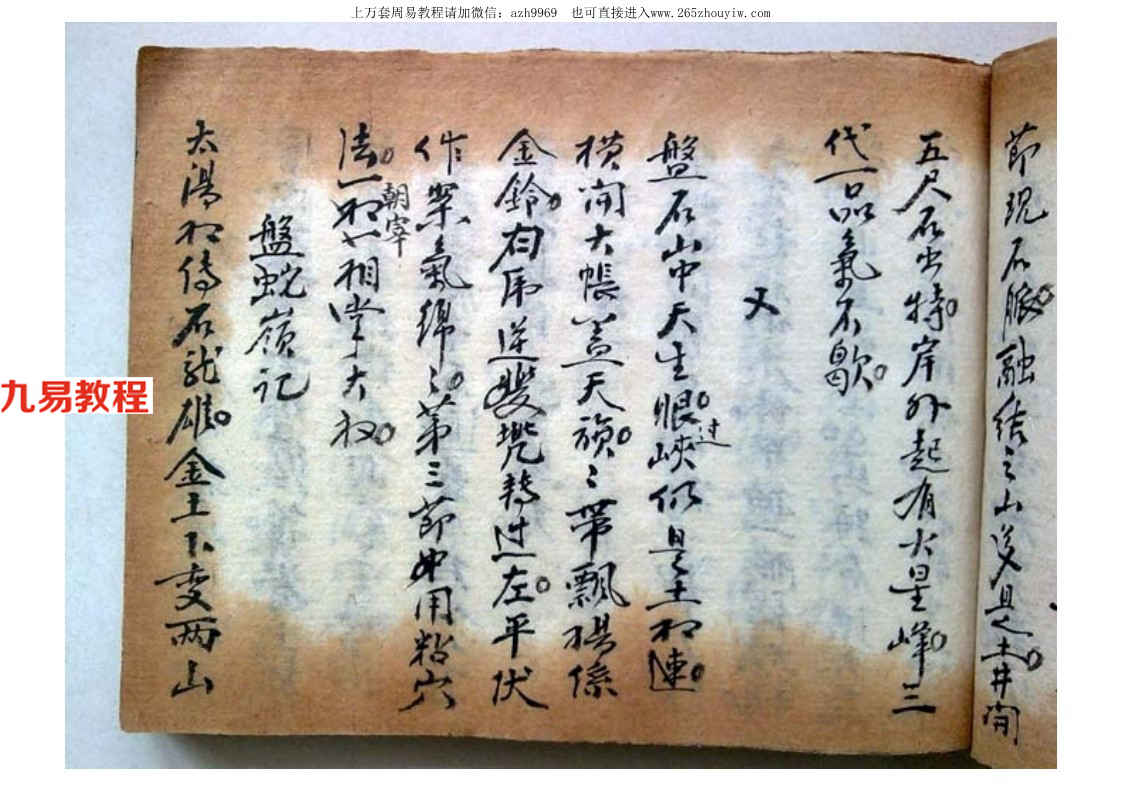 上万套周易教程请加微信：azh9969 也可直接进入www.265zhouyiw.com
節現石脈融結之山送是土井開
五尺石出特岸外起有火星峰三
代一品氣不歇
又
盤石山中天生眼過峽仍是土和連
横開大帳蓋天旗〻帶飄揚係
金鈴右乕逆雙兜轉过左平伏
作案氣綿〻第三節中用粘穴
法一和相掌大权
朝宰
盤蛇嶺记
太陽和传石龍雄金土下变两山
九易教程